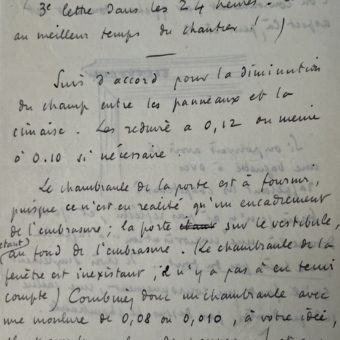 3e lettre dans les 24 heures.
au meilleur temps du chantier ! )
Suis d'accord pour la diminution
du champ entre les panneaux et la
cimaise. Les réduire à 0,12 ou même
à 0.10 si nécessaire.
Le chambranle de la porte est à fournir,
puisque ce n'est en réalité qu'un encadrement
de l'embrasure ; la porte étant sur le vestibule,
(au fond de l'embrasure. (Le chambranle de la
fenêtre est inexistant, il n'y a pas à en tenir
compte) Combinez donc un chambranle avec
une moulure de 0,08 ou 0,010, à votre idée,